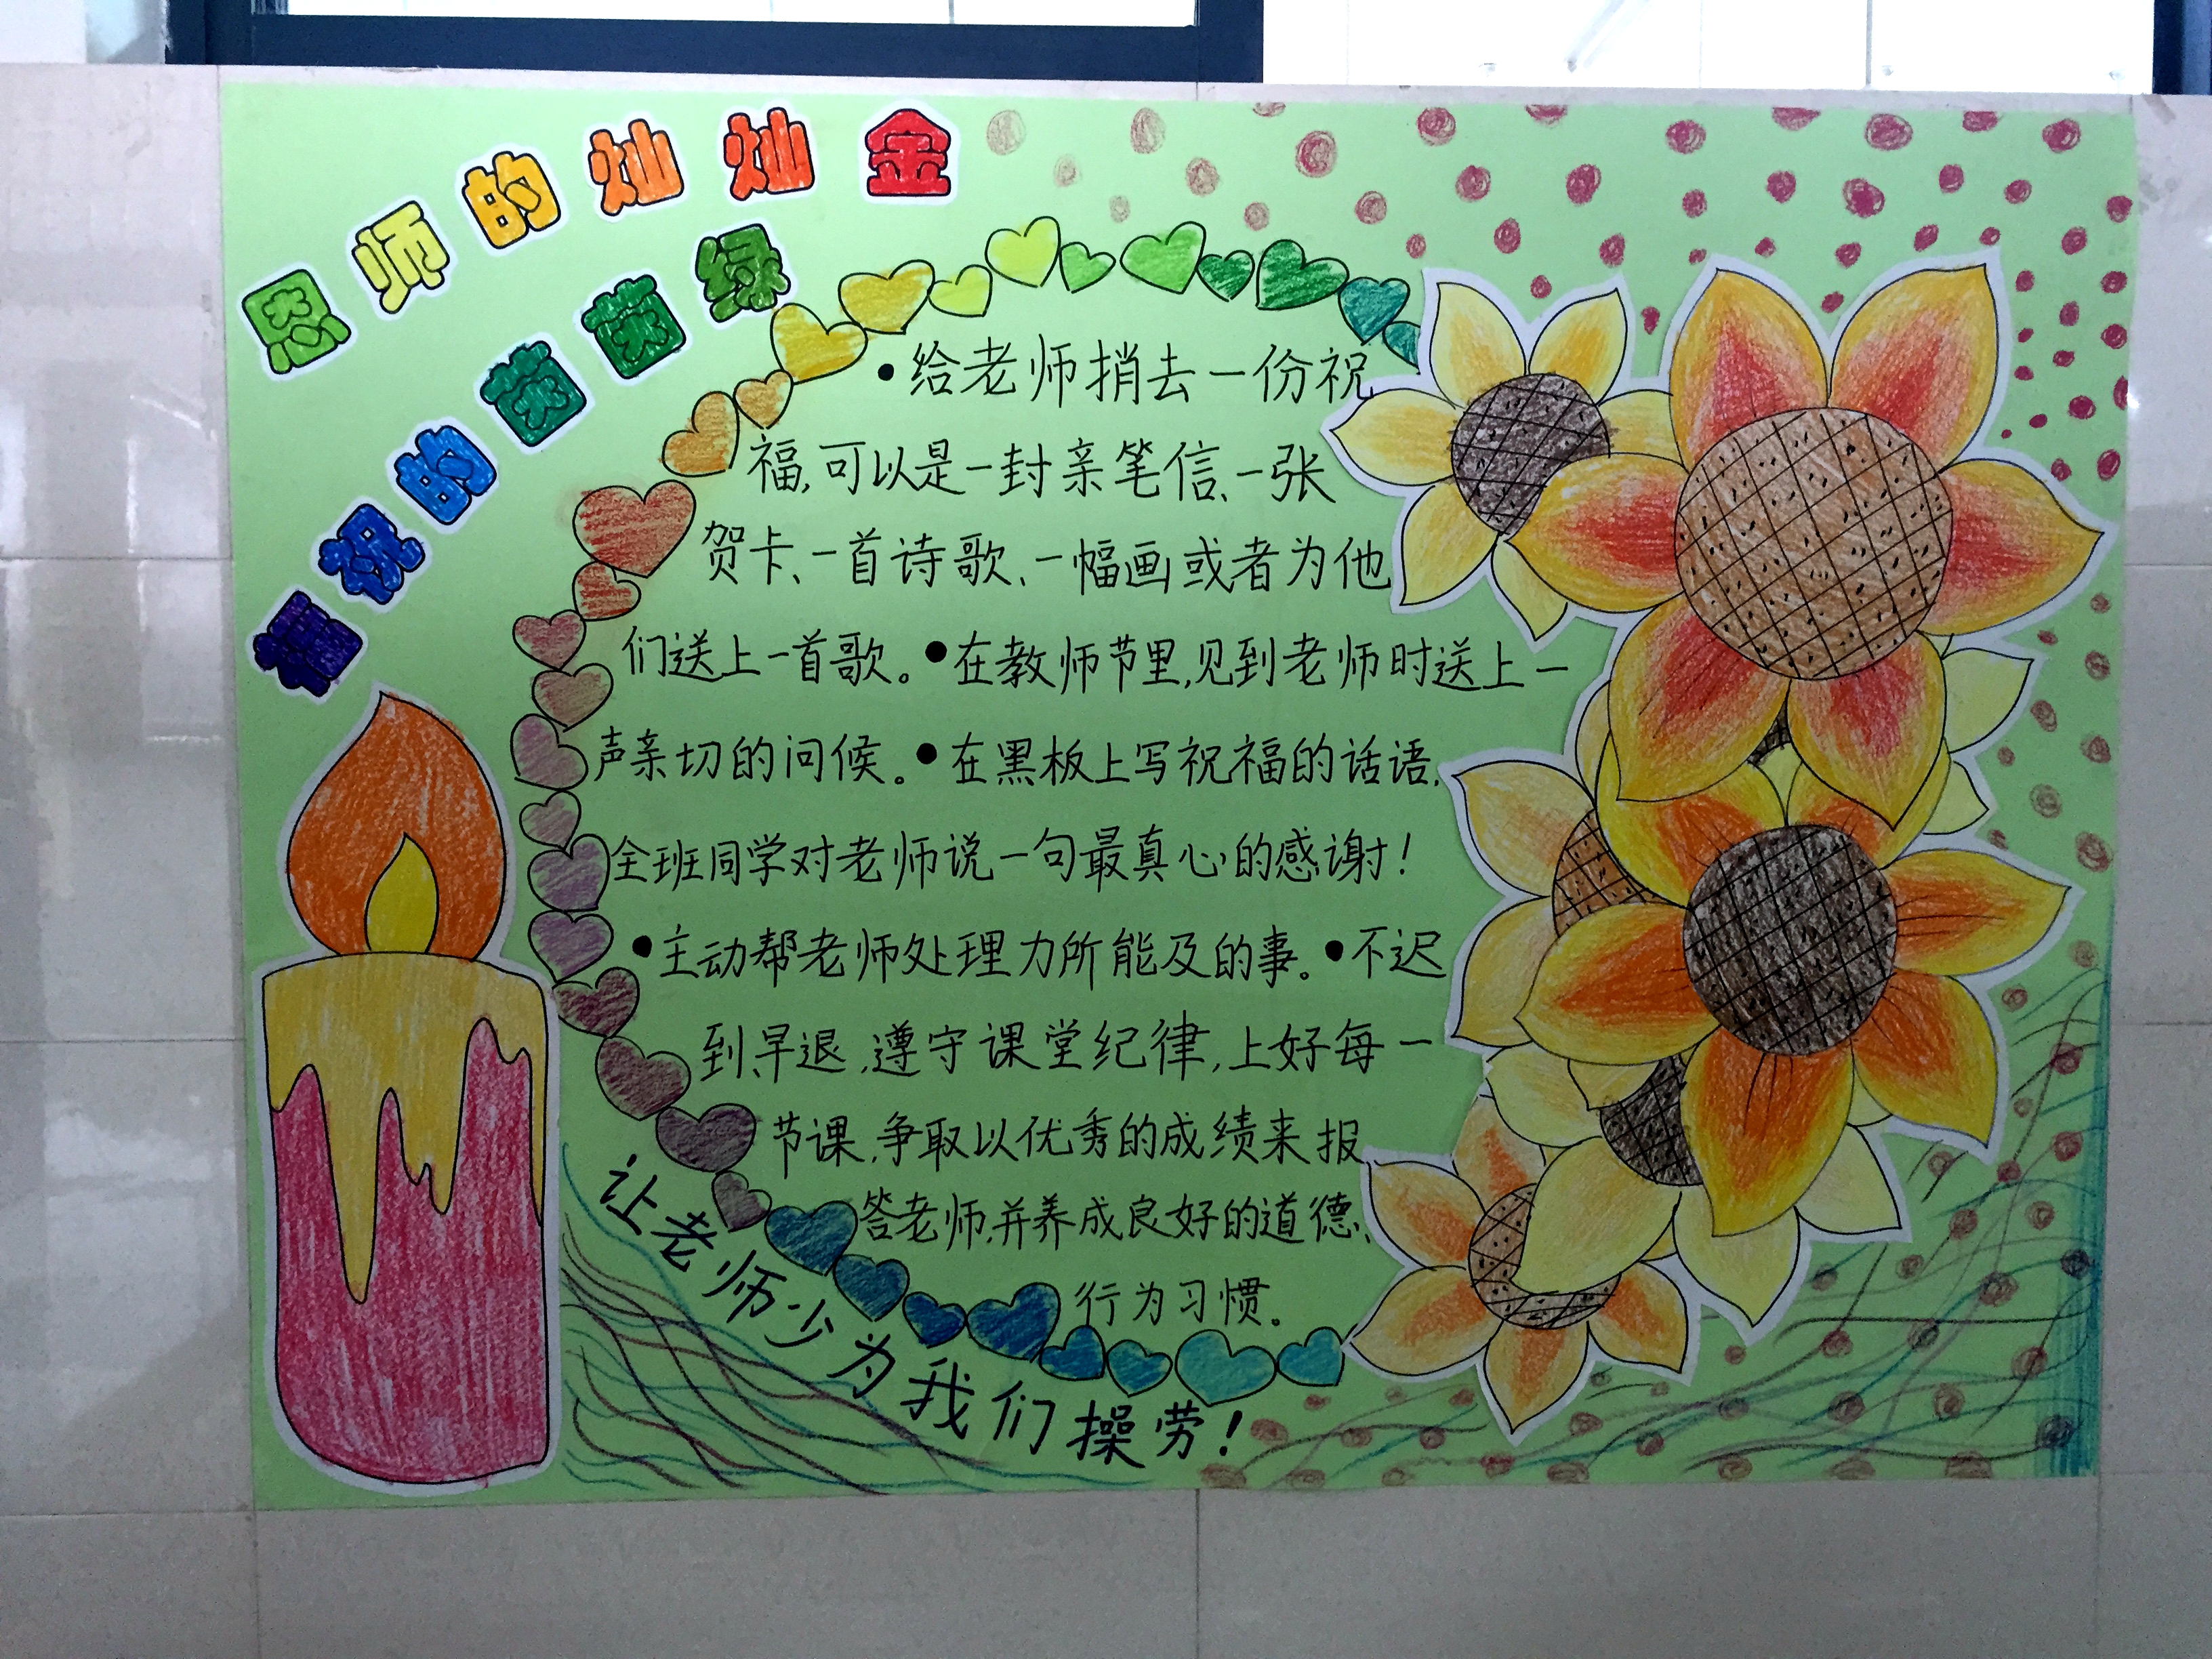 恩师的灿灿金
祝的茵茵绿
•给老师捎去一份祝
福,可以是一封亲笔信、一张
贺卡、一首诗歌、一幅画或者为他
们送上一首歌。•在教师节里,见到老师时送上一
声亲切的问候。•在黑板上写祝福的话语,
全班同学对老师说一句最真心的感谢!
•主动帮老师处理力所能及的事。•不迟
到、早退,遵守课堂纪律,上好每一
节课,争取以优秀的成绩来报
答老师,并养成良好的道德、
行为习惯。
让老师少为我们操劳!